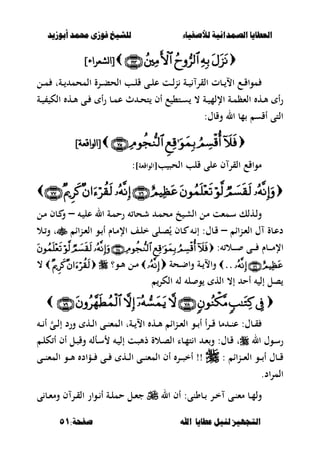 العطايا الصمدانية للأصفياء للشيخ فوزى محمد أبوزيد
﴿ نَزَلَ بِهِ ٱلرُّوحُ ٱلْأَمِينُ ١٩٣ ﴾ [الشعراء]
فمواقع الآيات القرآنية نزلت على قلب الحضرة المحمدية، فمن
رأى هذه العظمة الإلهية لا يستطيع أن يتحدث عما رأى فى هذه الكيفية
التى أقسم بها الله وقال:
﴿ فَلَآ أُقْسِمُ بِمَوَٰقِعِ ٱلنُّجُومِ ٧٥ ﴾ [الواقعة]
مواقع القرآن على قلب الحبيب [الواقعة]:
﴿ وَإِنَّهُۥ لَقَسَمٌ لَّوْ تَعْلَمُونَ عَظِيمٌ ٧٦ إِنَّهُۥ لَقُرْءَانٌ كَرِيمٌ ٧٧ ﴾
ولذلك سمعت من الشيخ محمد شحاته رحمة الله عليه – وكان من
دعاة آل العزائم – قال: إنه كان يُصلى خلف الإمام أبو العزائم ﷺ، وتلا
الإمام فى صلاته: ﴿ فَلَآ أُقْسِمُ بِمَوَٰقِعِ ٱلنُّجُومِ ٧٥ وَإِنَّهُۥ لَقَسَمٌ لَّوْ تَعْلَمُونَ
عَظِيمٌ ٧٦ إِنَّهُۥ .. ﴾ والآية واضحة ﴿ إِنَّهُۥ ﴾ من هو؟ ﷺ ﴿ لَقُرْءَانٌ كَرِيمٌ ﴾ لا
يصل إليه أحد إلا الذى يوصله له الكريم
﴿ فِى كِتَٰبٍ مَّكْنُونٍ ٧٨ لَّا يَمَسُّهُۥٓ إِلَّا ٱلْمُطَهَّرُونَ ٧٩ ﴾
فقال: عندما قرأ أبو العزائم هذه الآية، المعنى الذى ورد إلىَّ أنه
رسول الله ﷺ، قال: وبعد انتهاء الصلاة ذهبت إليه لأسأله وقبل أن أتكلم
قال أبو العزائم : ﷺ !! أخبره أن المعنى الذى فى فؤاده هو المعنى
المراد.
ولها معنى آخر باطنى: أن الله ﷻ جعل حملة أنوار القرآن ومعانى
التجهيز لنيل عطايا الله صفحة:٥١